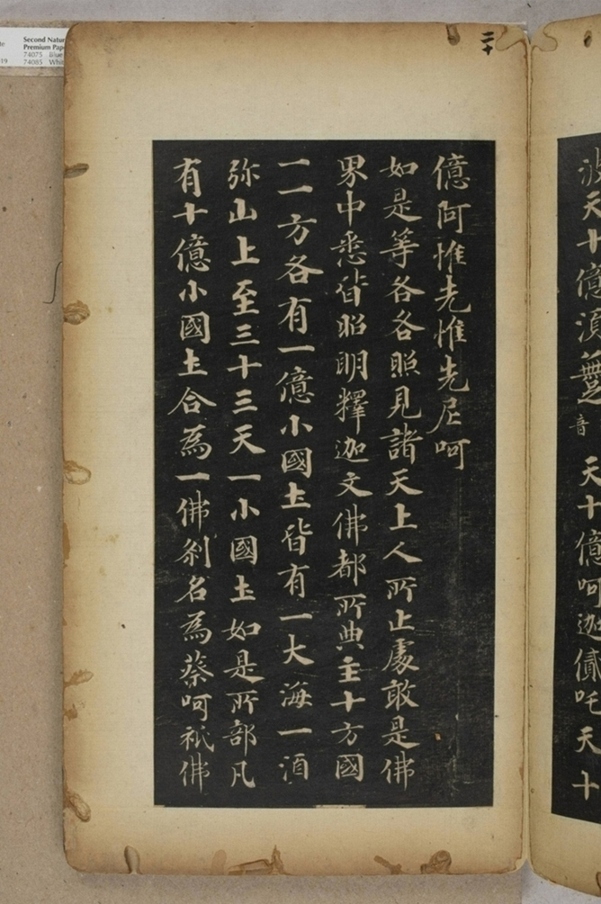 波天十億須㝹音天十億呵迦貳吒天十
三十
億阿惟先惟先尼呵
如是等各各照見諸天上人所止處敢是佛
界中悉皆照明釋迦文佛都所典主十方國
一一方各有一億小國土皆有一大海一湏
弥山上至三十三天一小國土如是所部凡
有十億小國土合為一佛刹名為蔡呵祇佛
Second Natur
Premium Pap
74075 Blue
74085 Whit
19